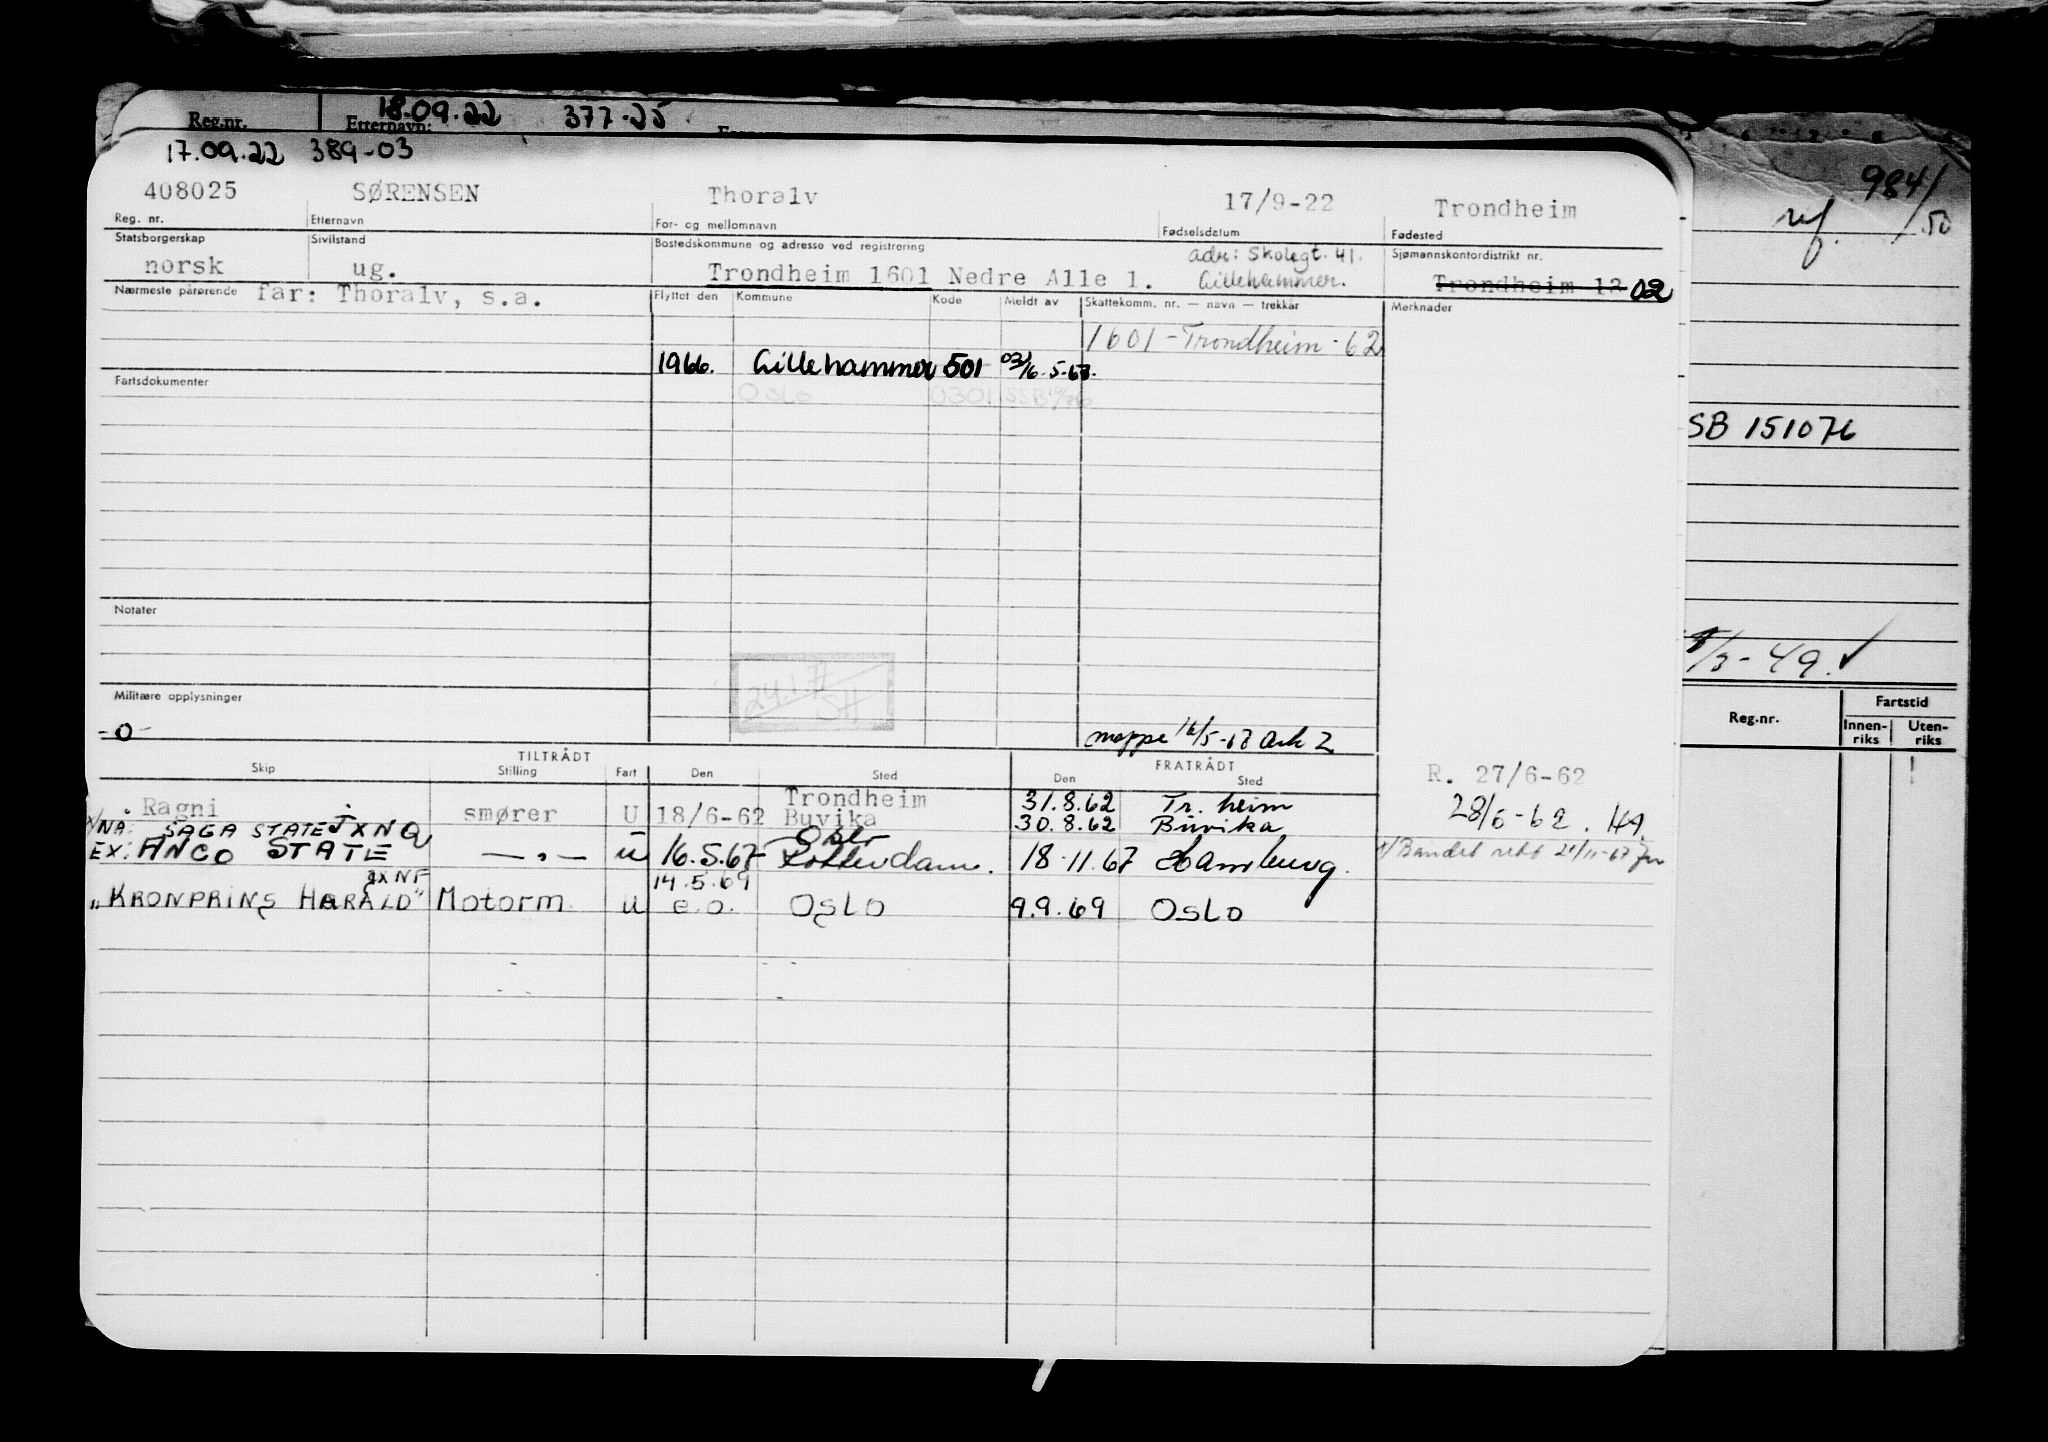 18.09.22 377.25
Reg.nr. Etternavn:
17.09.22 389-03
408025 SØRENSEN Thoralv 17/9-22 Trondheim
Reg. nr. Etternavn For- og mellomnavn Fødselsdatum Fødested
Statsborgerskap Sivilstand Bostedskommune og adresse ved registrering adr: Skolegt. 41. Sjømannskontordistrikt nr.
norsk ug. Trondheim 1601 Nedre Alle 1. Lillehammer. Trondheim 12 02
Nærmeste pårørende far: Thoralv, s.a. Flyttet den Kommune Kode Meldt av Skattekomm. nr. — navn — trekkår Merknader
1601-Trondheim-62
1966. Lillehammer 501 02/16.5.67.
Fartsdokumenter
Oslo 0301 SSB
Notater
Militære opplysninger
-0-
mappe 16/5-67 Ark 2
TILTRÅDT FRATRÅDT
Skip Stilling Fart Den Sted Den Sted
R. 27/6-62
Ragni smører U 18/6-62 Trondheim Buvika 31.8.62 Tr.heim 30.8.62 Buvika
28/6-62. HA.
x/NA: SAGA STATE JXNQ
EX: ANCO STATE — " — u 16.5.67 Oslo Rotterdam. 18.11.67 Hamburg.
x/Bandet rett 21/11-67
"KRONPRINS HARALD" JXNF Motorm. u 14.5.69 e.o. Oslo 9.9.69 Oslo
984/50
ref.
SB 151076
/3-49. ✓
Reg.nr. Fartstid
Innen-riks Uten-riks